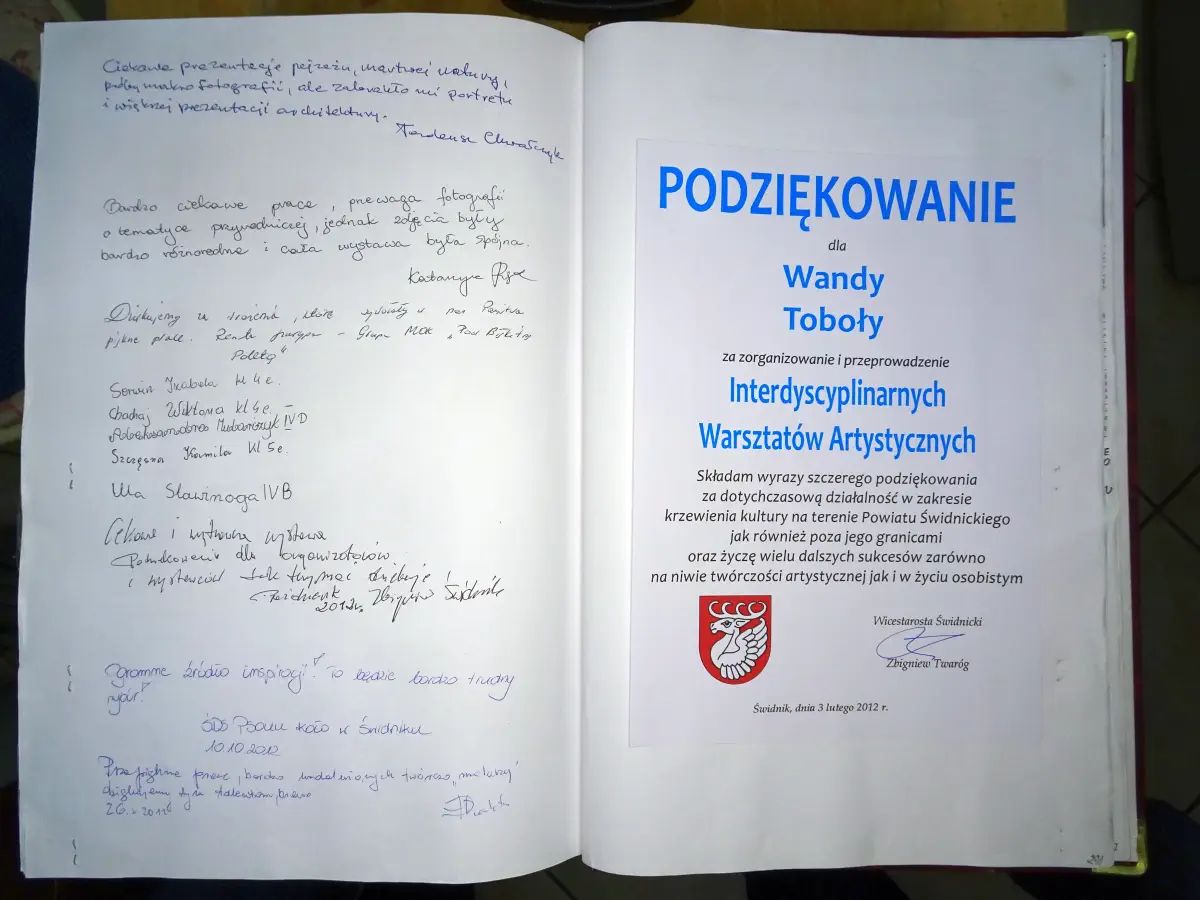 Ciekawe prezentacje pejzażu, martwej natury,
próby makrofotografii, ale zabrakło mi portretu
i większej prezentacji architektury.
Tadeusz
Bardzo ciekawe prace, przewaga fotografii
o tematyce przyrodniczej, jednak zdjęcia były
bardzo różnorodne i cała wystawa była spójna.
Katarzyna
Dziękujemy za wrażenia, które w nas Państwa
piękne prace. - Grupa MDK "Pod
Paletą"
Izabela kl 4e.
Wiktoria kl 4e.
IVD
Szczęsna Kamila kl 5e.
Ula Sławinoga IVB
Ciekawe i wystawa
Podziękowanie dla organizatorów
i wystawców tak trzymać dziękuję!
2012r. Zbigniew Świdnik
Ogromne źródło inspiracji! To będzie bardzo trudny
wybór!
ŚDS PSOUU Koło w Świdniku
10.10.2012
Przepiękne prace, bardzo
PODZIĘKOWANIE
dla
Wandy
Toboły
za zorganizowanie i przeprowadzenie
Interdyscyplinarnych
Warsztatów Artystycznych
Składam wyrazy szczerego podziękowania
za dotychczasową działalność w zakresie
krzewienia kultury na terenie Powiatu Świdnickiego
jak również poza jego granicami
oraz życzę wielu dalszych sukcesów zarówno
na niwie twórczości artystycznej jak i w życiu osobistym
Wicestarosta Świdnicki
Zbigniew Twaróg
Świdnik, dnia 3 lutego 2012 r.